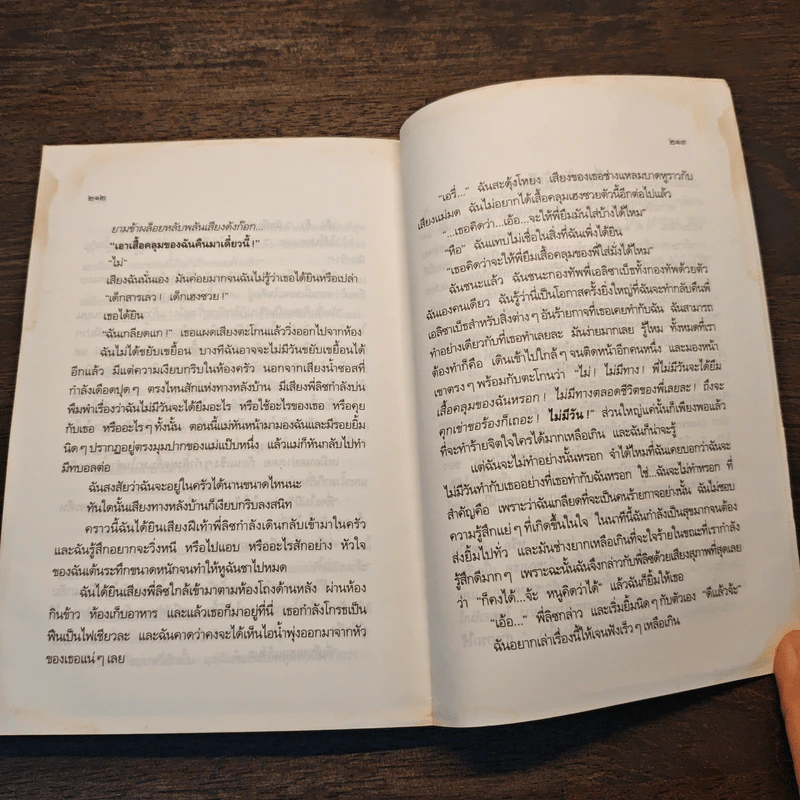 ๒๑๒
ยามข้าผล็อยหลับพลันเสียงดังก๊อก...
"เอาเสื้อคลุมของฉันคืนมาเดี๋ยวนี้ !"
"ไม่"
เสียงฉันนั่นเอง มันค่อยมากจนฉันไม่รู้ว่าเธอได้ยินหรือเปล่า
"เด็กสารเลว ! เด็กเฮงซวย !"
เธอได้ยิน
"ฉันเกลียดแก !" เธอแผดเสียงตะโกนแล้ววิ่งออกไปจากห้อง
ฉันไม่ได้ขยับเขยื้อน บางทีฉันอาจจะไม่มีวันขยับเขยื้อนได้
อีกแล้ว มีแต่ความเงียบกริบในห้องครัว นอกจากเสียงน้ำซอสที่
กำลังเดือดปุด ๆ ตรงไหนสักแห่งทางหลังบ้าน มีเสียงพี่ลิซกำลังบ่น
พึมพำเรื่องว่าฉันไม่มีวันจะได้ยืมอะไร หรือใช้อะไรของเธอ หรือคุย
กับเธอ หรืออะไร ๆ ทั้งนั้น ตอนนี้แม่หันหน้ามามองฉันและมีรอยยิ้ม
นิด ๆ ปรากฏอยู่ตรงมุมปากของแม่แป๊บหนึ่ง แล้วแม่ก็หันกลับไปทำ
มีทบอลต่อ
ฉันสงสัยว่าฉันจะอยู่ในครัวได้นานขนาดไหนนะ
ทันใดนั้นเสียงทางหลังบ้านก็เงียบกริบลงสนิท
คราวนี้ฉันได้ยินเสียงฝีเท้าพี่ลิซกำลังเดินกลับเข้ามาในครัว
และฉันรู้สึกอยากจะวิ่งหนี หรือไปแอบ หรืออะไรสักอย่าง หัวใจ
ของฉันเต้นระทึกขนาดหนักจนทำให้หูฉันชาไปหมด
ฉันได้ยินเสียงพี่ลิซใกล้เข้ามาตามห้องโถงด้านหลัง ผ่านห้อง
กินข้าว ห้องเก็บอาหาร และแล้วเธอก็มาอยู่ที่นี่ เธอกำลังโกรธเป็น
ฟืนเป็นไฟเชียวละ และฉันคาดว่าคงจะได้เห็นไอน้ำพุ่งออกมาจากหัว
ของเธอแน่ ๆ เลย
๒๑๓
"เอรี่..." ฉันสะดุ้งโหยง เสียงของเธอช่างแหลมบาดหูราวกับ
เสียงแม่มด ฉันไม่อยากได้เสื้อคลุมเฮงซวยตัวนี้อีกต่อไปแล้ว
"...เธอคิดว่า...เอ้อ...จะให้พี่ยืมมันใส่บ้างได้ไหม"
"หือ" ฉันแทบไม่เชื่อในสิ่งที่ฉันเพิ่งได้ยิน
"เธอคิดว่าจะให้พี่ยืมเสื้อคลุมของพี่ใส่มั่งได้ไหม"
ฉันชนะแล้ว ฉันชนะกองทัพพี่เอลิซาเบ็ธทั้งกองทัพด้วยตัว
ฉันเองคนเดียว ฉันรู้ว่านี่เป็นโอกาสครั้งยิ่งใหญ่ที่ฉันจะทำกลับคืนพี่
เอลิซาเบ็ธสำหรับสิ่งต่าง ๆ อันร้ายกาจที่เธอเคยทำกับฉัน ฉันสามารถ
ทำอย่างเดียวกับที่เธอทำเลยละ มันง่ายมากเลย รู้ไหม ทั้งหมดที่เรา
ต้องทำก็คือ เดินเข้าไปใกล้ ๆ จนติดหน้าอีกคนหนึ่ง และมองหน้า
เขาตรง ๆ พร้อมกับตะโกนว่า "ไม่ ! ไม่มีทาง ! พี่ไม่มีวันจะได้ยืม
เสื้อคลุมของฉันหรอก ! ไม่มีทางตลอดชีวิตของพี่เลยละ ! ถึงจะ
คุกเข่าขอร้องก็เถอะ ! ไม่มีวัน !" ส่วนใหญ่แค่นั้นก็เพียงพอแล้ว
ที่จะทำร้ายจิตใจใครได้มากเหลือเกิน และฉันก็น่าจะรู้
แต่ฉันจะไม่ทำอย่างนั้นหรอก จำได้ไหมที่ฉันเคยบอกว่าฉันจะ
ไม่มีวันทำกับเธออย่างที่เธอทำกับฉันหรอก ใช่...ฉันจะไม่ทำหรอก ที่
สำคัญคือ เพราะว่าฉันเกลียดที่จะเป็นคนร้ายกาจอย่างนั้น ฉันไม่ชอบ
ความรู้สึกแย่ ๆ ที่เกิดขึ้นในใจ ในนาทีนี้ฉันกำลังเป็นสุขมากจนต้อง
ส่งยิ้มไปทั่ว และมันช่างยากเหลือเกินที่จะใจร้ายในขณะที่เรากำลัง
รู้สึกดีมาก ๆ เพราะฉะนั้นฉันจึงกล่าวกับพี่ลิซด้วยเสียงสุภาพที่สุดเลย
ว่า "ก็คงได้...จ้ะ หนูคิดว่าได้" แล้วฉันก็ยิ้มให้เธอ
"เอ้อ..." พี่ลิซกล่าว และเริ่มยิ้มนิด ๆ กับตัวเอง "ดีแล้วจ้ะ"
ฉันอยากเล่าเรื่องนี้ให้เจนฟังเร็ว ๆ เหลือเกิน